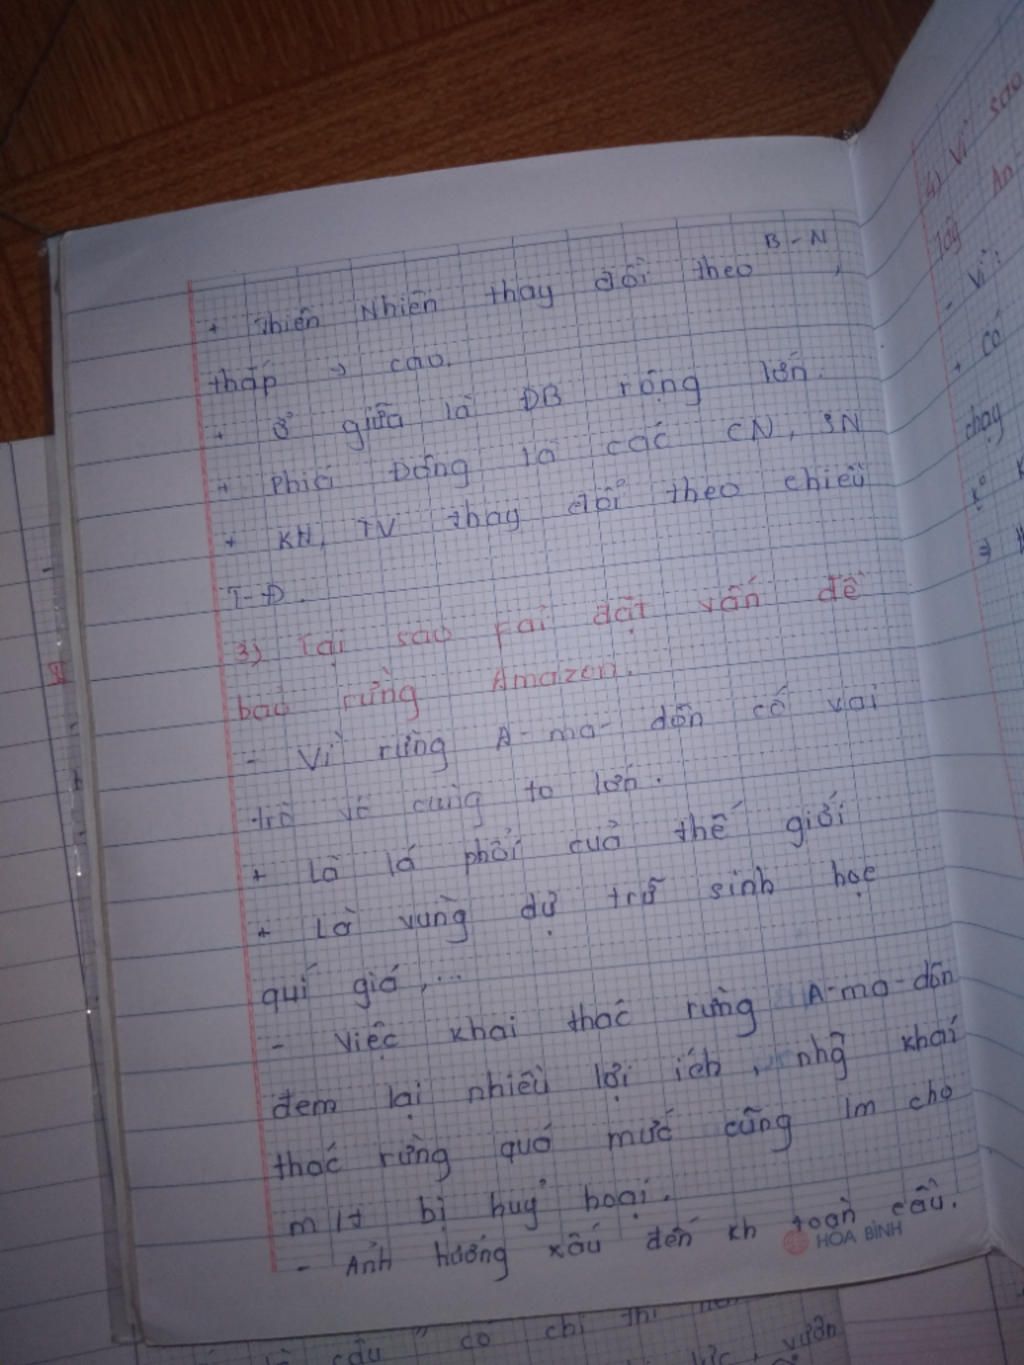 B - N
+ Thiên Nhiên thay đổi theo ,
thấp → cao.
+ Ở giữa là ĐB rộng lớn.
+ Phiá Đông là các CN, SN
+ KH, TV thay đổi theo chiều
T - Đ.
3) Tại sao fải đặt vấn đề
baỏ rừng Amazon.
- Vì rừng A-ma-dôn có vai
trò vô cùng to lớn.
+ Là lá phổi của thế giới
+ Là vùng dự trữ sinh học
quí giá,...
- Việc khai thác rừng A-ma-dôn
đem lại nhiều lợi ích, nhg khai
thác rừng quá mức cũng lm cho
m 1+ bị huỷ hoại.
- Ảnh hưởng xấu đến kh toàn cầu.
HÒA BÌNH
4) Vì sao
An-
- Vì:
+ Có
chạy
cầu " có chí thì
vườn